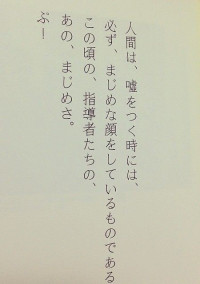 人間は、嘘をつく時には、
必ず、まじめな顔をしているものである
この頃の、指導者たちの、
あの、まじめさ。
ぷ！